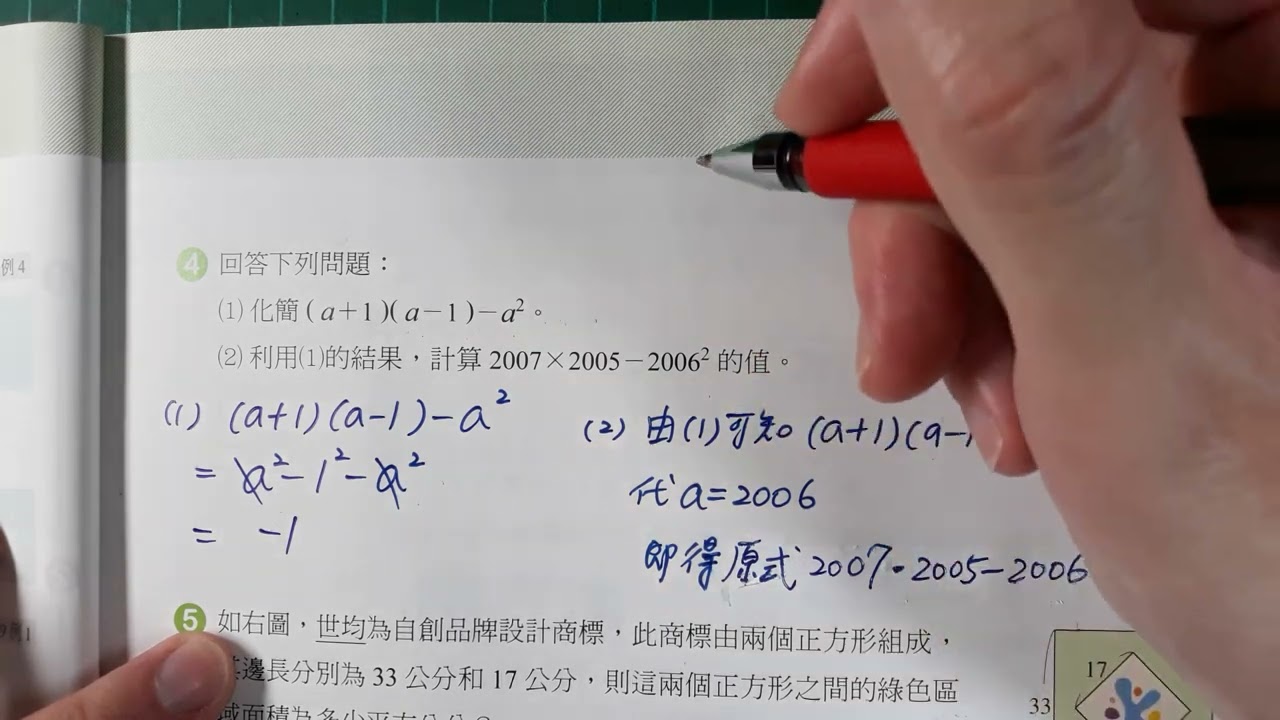 例4
4 回答下列問題：
(1) 化簡 ( a+1 )( a-1 )-a²。
(2) 利用(1)的結果，計算 2007×2005-2006² 的值。
(1) (a+1)(a-1)-a²
= a²-1²-a²
= -1
(2) 由(1)可知 (a+1)(a-1
代 a=2006
即得原式 2007·2005-2006
例1
5 如右圖，世均為自創品牌設計商標，此商標由兩個正方形組成，
其邊長分別為 33 公分和 17 公分，則這兩個正方形之間的綠色區
域面積為多少平方公分？
17
33